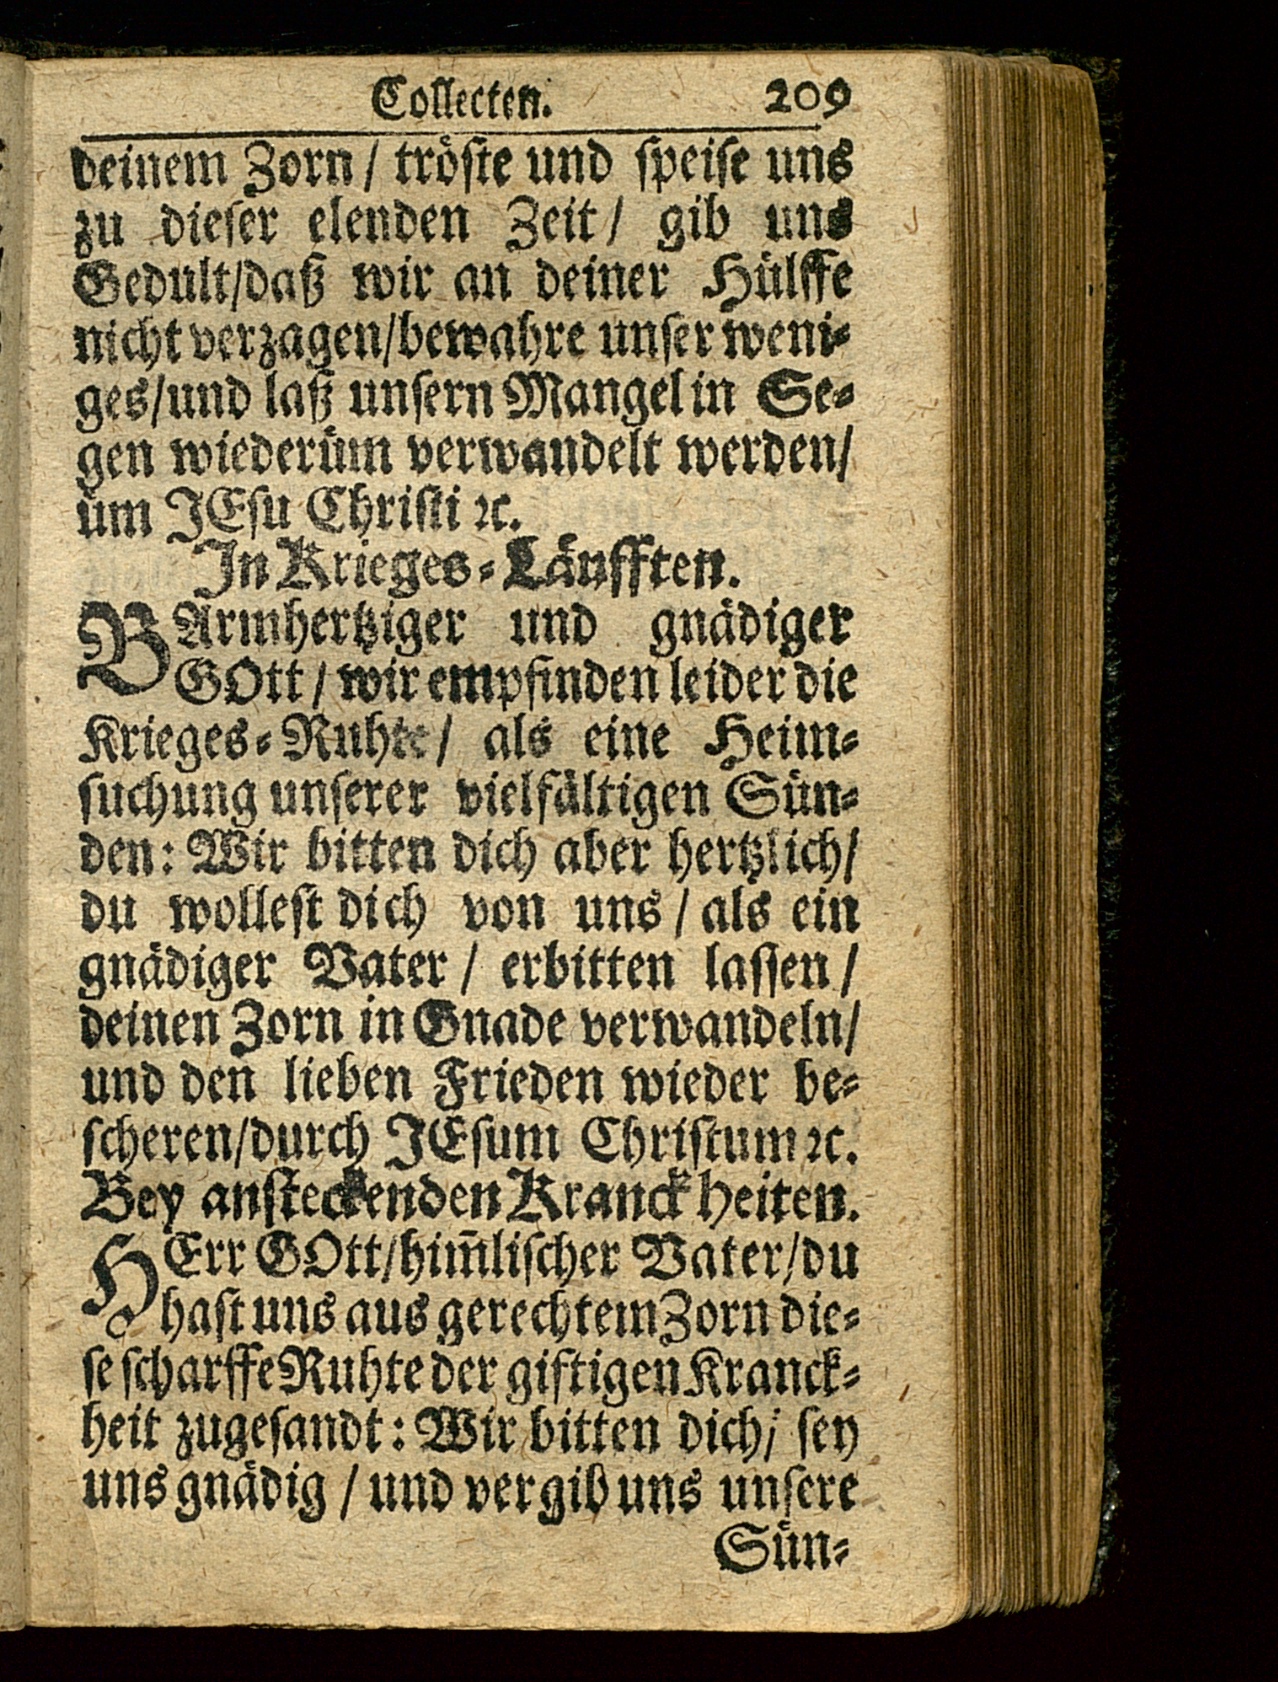 Collecten. 209
deinem Zorn / tröſte und ſpeiſe uns
zu dieſer elenden Zeit / gib uns
Gedult/daß wir an deiner Hülffe
nicht verzagen/bewahre unſer weni-
ges/und laß unſern Mangel in Se-
gen wiederüm verwandelt werden/
üm JEſu Chriſti ꝛc.
In Krieges-Läufften.
BArmhertziger und gnädiger
GOtt / wir empfinden leider die
Krieges-Ruhte / als eine Heim-
ſuchung unſerer vielfältigen Sün-
den: Wir bitten dich aber hertzlich/
du wolleſt dich von uns / als ein
gnädiger Vater / erbitten laſſen /
deinen Zorn in Gnade verwandeln/
und den lieben Frieden wieder be-
ſcheren/durch JEſum Chriſtum ꝛc.
Bey anſteckenden Kranckheiten.
HErr GOtt/him̃liſcher Vater/du
haſt uns aus gerechtem Zorn die-
ſe ſcharffe Ruhte der giftigen Kranck-
heit zugeſandt: Wir bitten dich/ ſey
uns gnädig / und vergib uns unſere
Sün-